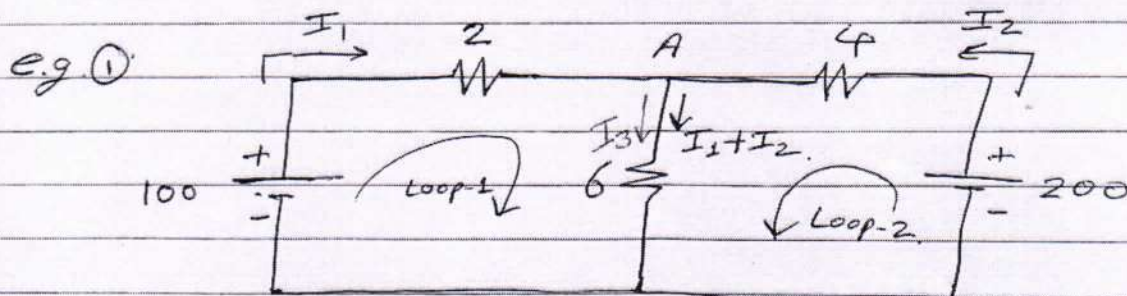 e.g. ①
I₁ 2 A 4 I₂
I₃ I₁+I₂.
+ +
100 Loop-1 6 Loop-2. 200
- -